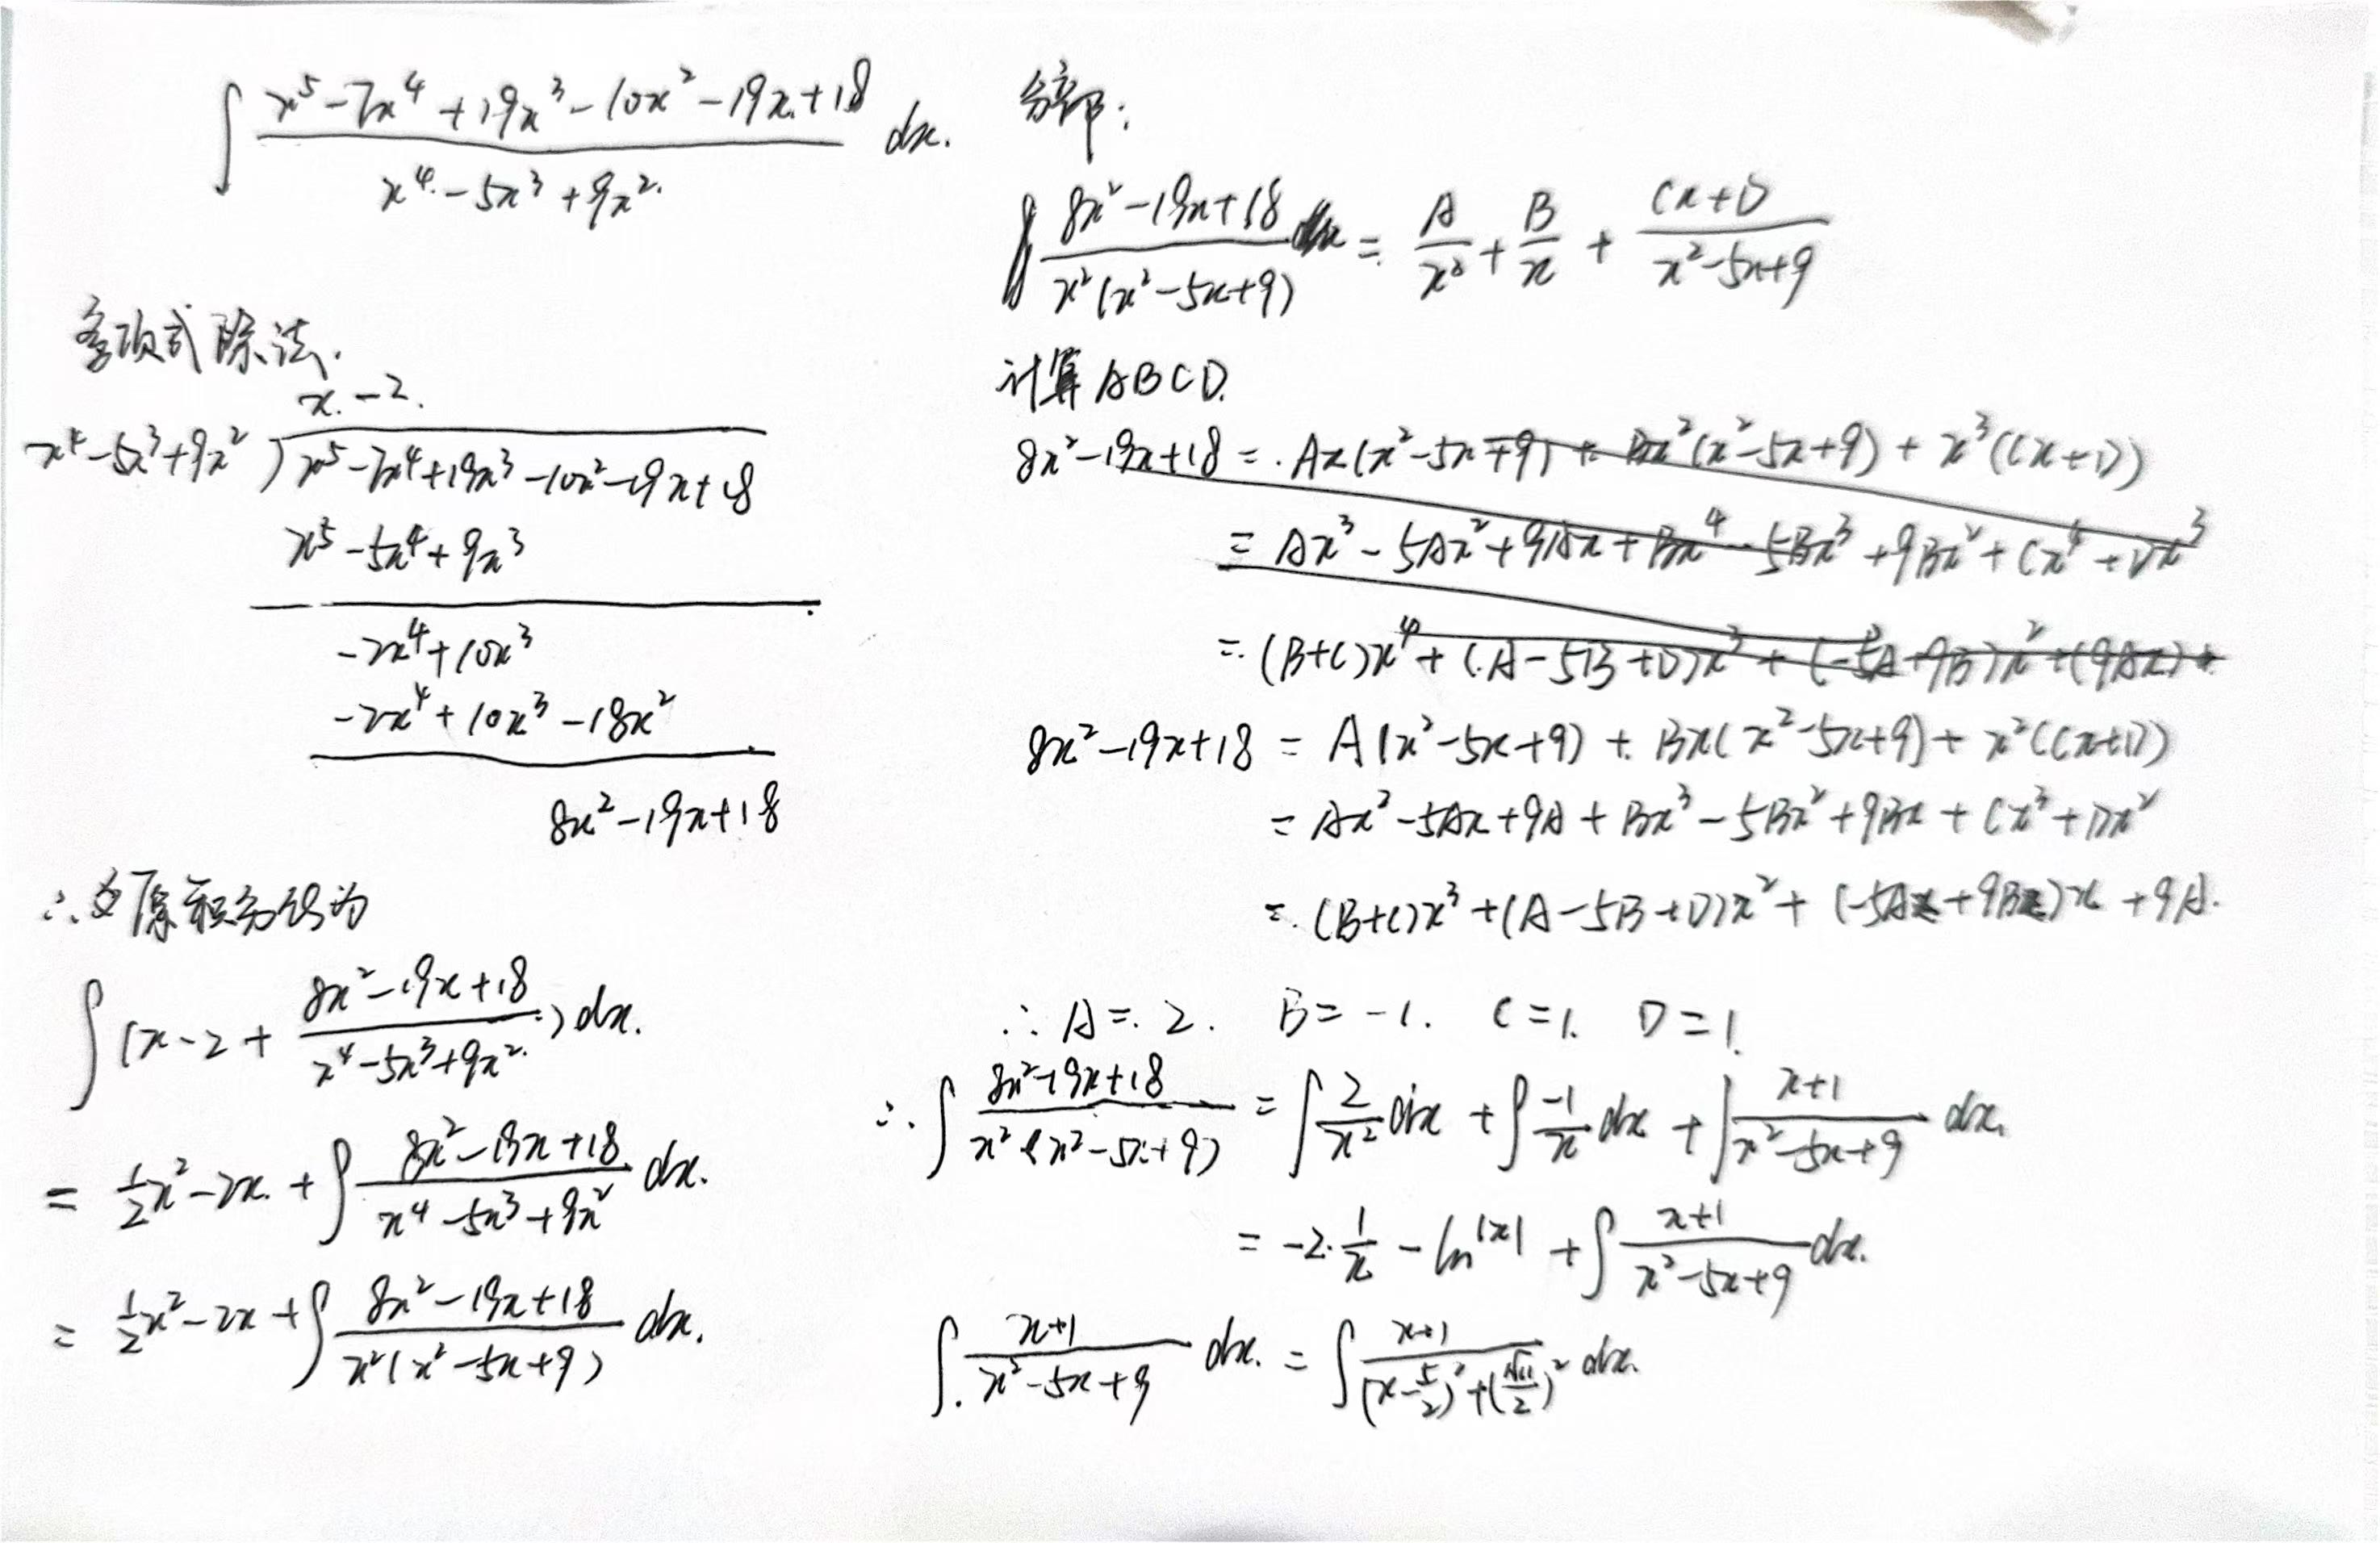 ∫ (x⁵-7x⁴+19x³-10x²-19x+18)/(x⁴-5x³+9x²) dx.
多项式除法.
x-2.
x⁴-5x³+9x² ) x⁵-7x⁴+19x³-10x²-19x+18
x⁵-5x⁴+9x³
-2x⁴+10x³
-2x⁴+10x³-18x²
8x²-19x+18
∴ 原积分 为
∫(x-2+ (8x²-19x+18)/(x⁴-5x³+9x²)) dx.
= ½x²-2x+∫ (8x²-19x+18)/(x⁴-5x³+9x²) dx.
= ½x²-2x+∫ (8x²-19x+18)/(x²(x²-5x+9)) dx.
分部:
(8x²-19x+18)/(x²(x²-5x+9)) = A/x² + B/x + (Cx+D)/(x²-5x+9)
计算ABCD.
8x²-19x+18 = Ax(x²-5x+9) + Bx²(x²-5x+9) + x³(Cx+D)
= Ax³-5Ax²+9Ax+Bx⁴-5Bx³+9Bx²+Cx⁴+Dx³
= (B+C)x⁴+(A-5B+D)x³+(-5A+9B)x²+(9Ax)+
8x²-19x+18 = A(x²-5x+9) + Bx(x²-5x+9) + x²(Cx+D)
= Ax²-5Ax+9A+Bx³-5Bx²+9Bx+Cx³+Dx²
= (B+C)x³+(A-5B+D)x²+(-5A+9B)x+9A.
∴ A=2. B=-1. C=1. D=1.
∴ ∫ (8x²-19x+18)/(x²(x²-5x+9)) = ∫ 2/x² dx + ∫ -1/x dx + ∫ (x+1)/(x²-5x+9) dx.
= -2·1/x - ln|x| + ∫ (x+1)/(x²-5x+9) dx.
∫ (x+1)/(x²-5x+9) dx. = ∫ (x+1)/((x-5/2)²+(√11/2)²) dx.